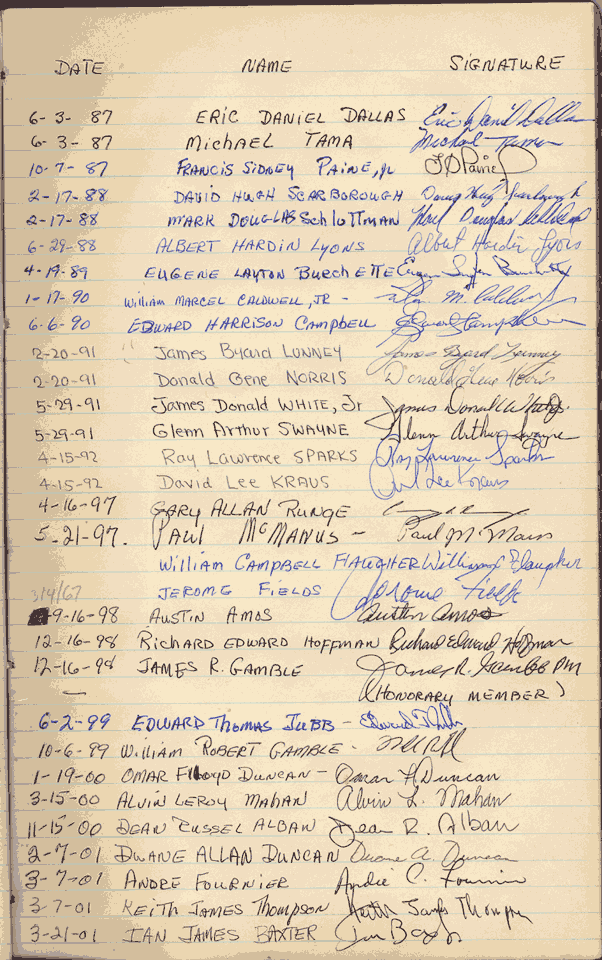 DATE NAME SIGNATURE
6-3-87 ERIC DANIEL DALLAS Eric Daniel Dallas
6-3-87 MICHAEL TAMA Michael Tama
10-7-87 FRANCIS SIDNEY PAINE, JR FS Paine Jr
2-17-88 DAVID HUGH SCARBOROUGH David Hugh Scarborough
2-17-88 MARK DOUGLAS SchloTTMAN Mark Douglas
6-29-88 ALBERT HARDIN LYONS Albert Hardin Lyons
4-19-89 EUGENE LAYTON BURCHETTE Eugene Layton Burchette
1-17-90 William MARCEL CALDWELL, JR - M. Caldwell
6-6-90 EDWARD HARRISON CAMPBELL Edward Campbell
2-20-91 James Byard LUNNEY James Byard Lunney
2-20-91 Donald Gene NORRIS Donald Gene Norris
5-29-91 James Donald WHITE, Jr James Donald White Jr.
5-29-91 Glenn Arthur SWAYNE Glenn Arthur Swayne
4-15-92 Ray Lawrence SPARKS Ray Lawrence Sparks
4-15-92 David Lee KRAUS David Lee Kraus
4-16-97 GARY ALLAN RUNGE
5-21-97. PAUL McMANUS - Paul McManus
WILLIAM CAMPBELL FLAUGHER William Flaugher
3/4/67 JEROME FIELDS Jerome Fields
9-16-98 AUSTIN AMOS Austin Amos
12-16-98 RICHARD EDWARD HOFFMAN Richard Edward Hoffman
12-16-98 JAMES R. GAMBLE James R. Gamble PM
— (HONORARY MEMBER)
6-2-99 EDWARD THOMAS JUBB - Edward
10-6-99 William ROBERT GAMBLE -
1-19-00 OMAR FLLOYD DUNCAN - Omar F. Duncan
3-15-00 ALVIN LEROY MAHAN Alvin L. Mahan
11-15-00 DEAN RUSSEL ALBAN Dean R. Alban
2-7-01 DWANE ALLAN DUNCAN Duane A. Duncan
3-7-01 ANDRE FOURNIER Andre C. Fournier
3-7-01 KEITH JAMES THOMPSON Keith James Thompson
3-21-01 IAN JAMES BAXTER Ian Baxter